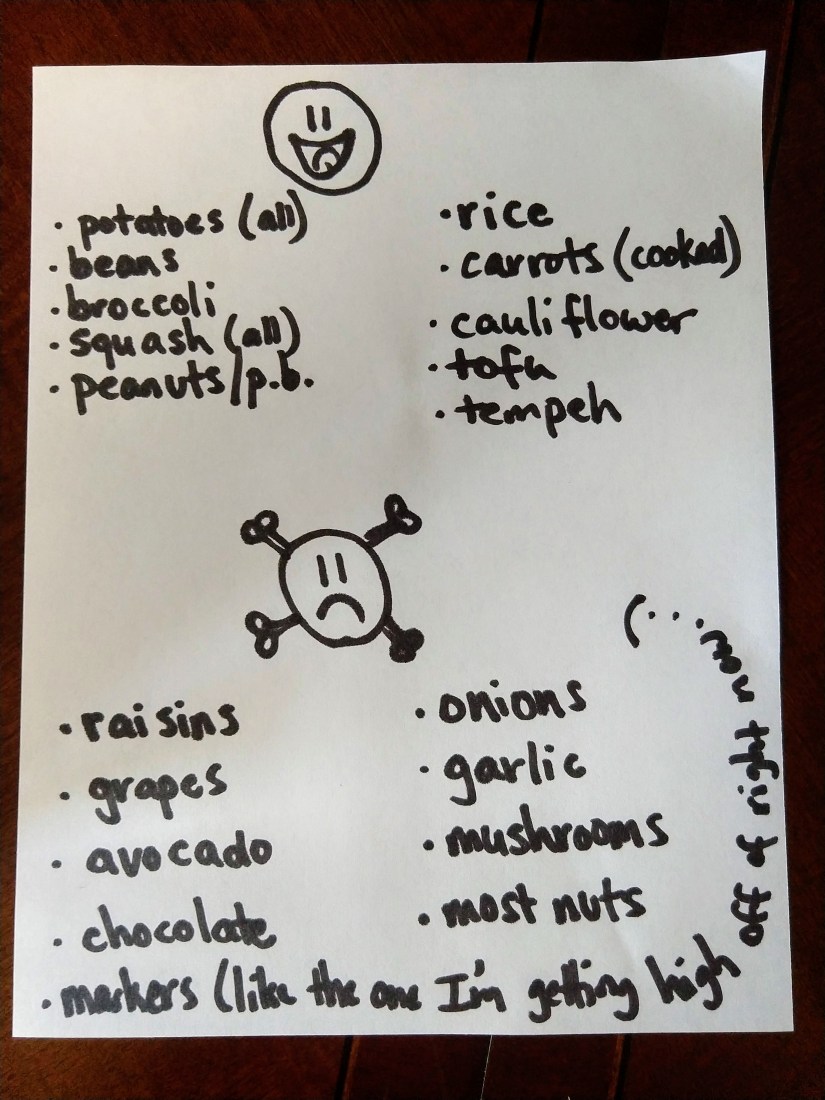 • potatoes (all)
• beans
• broccoli
• squash (all)
• peanuts/p.b.
• rice
• carrots (cooked)
• cauliflower
• tofu
• tempeh
• raisins
• grapes
• avocado
• chocolate
• onions
• garlic
• mushrooms
• most nuts
• markers (like the one I'm getting high off of right now...)